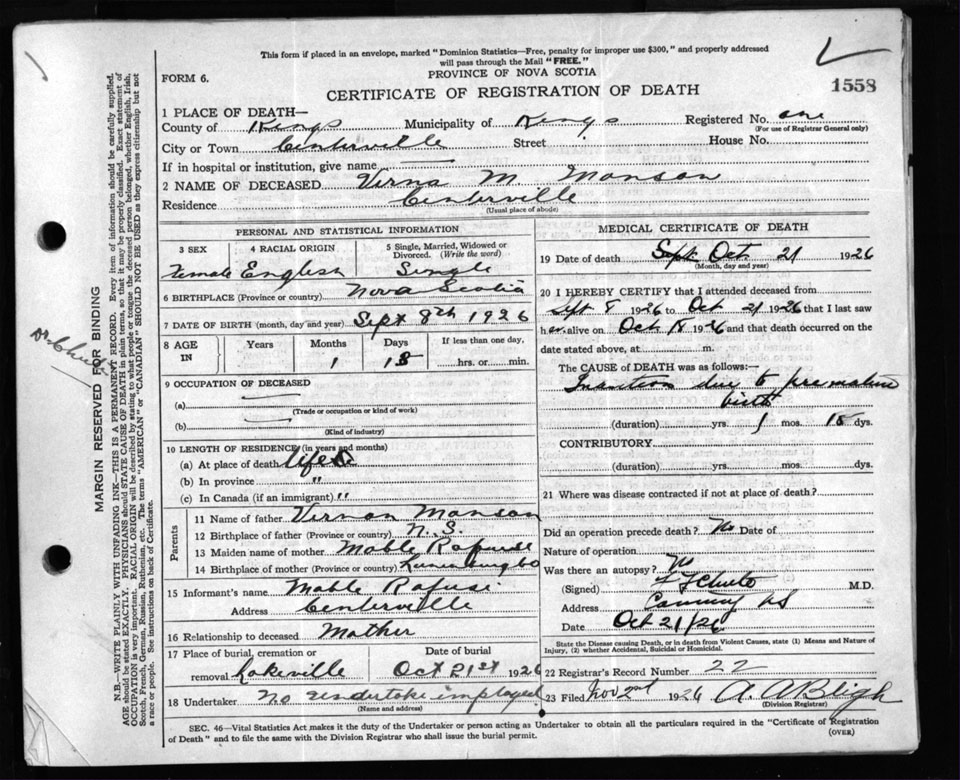 This form if placed in an envelope, marked "Dominion Statistics—Free, penalty for improper use $300," and properly addressed
will pass through the Mail "FREE."
PROVINCE OF NOVA SCOTIA
FORM 6.
CERTIFICATE OF REGISTRATION OF DEATH
1558
1 PLACE OF DEATH—
County of Kings Municipality of Kings Registered No. one
(For use of Registrar General only)
City or Town Centerville Street House No.
If in hospital or institution, give name
2 NAME OF DECEASED Verna M. Manson
Residence Centerville
(Usual place of abode)
PERSONAL AND STATISTICAL INFORMATION
3 SEX 4 RACIAL ORIGIN 5 Single, Married, Widowed or Divorced. (Write the word)
Female English Single
6 BIRTHPLACE (Province or country) Nova Scotia
7 DATE OF BIRTH (month, day and year) Sept 8th 1926
8 AGE IN Years Months Days If less than one day,
1 13 hrs. or min.
9 OCCUPATION OF DECEASED
(a)
(Trade or occupation or kind of work)
(b)
(Kind of industry)
10 LENGTH OF RESIDENCE (in years and months)
(a) At place of death Life
(b) In province "
(c) In Canada (if an immigrant) "
Parents
11 Name of father Vernon Manson
12 Birthplace of father (Province or country) N.S.
13 Maiden name of mother Mable Rafuse
14 Birthplace of mother (Province or country) Lunenburg Co
15 Informant's name Mable Rafuse
Address Centerville
16 Relationship to deceased Mother
17 Place of burial, cremation or removal Date of burial
Lakeville Oct 21st 1926
18 Undertaker No undertake employed
(Name and address)
MEDICAL CERTIFICATE OF DEATH
19 Date of death Sept Oct. 21 1926
(Month, day and year)
20 I HEREBY CERTIFY that I attended deceased from
Sept 8 1926 to Oct 21 1926 that I last saw
her alive on Oct 18 1926 and that death occurred on the
date stated above, at m.
The CAUSE of DEATH was as follows:—
Inanition due to premature
birth
(duration) yrs. 1 mos. 15 dys.
CONTRIBUTORY
(duration) yrs. mos. dys.
21 Where was disease contracted if not at place of death?
Did an operation precede death? No Date of
Nature of operation
Was there an autopsy? No
(Signed) M.D.
Address Canning NS
Date Oct 21/26
State the Disease causing Death, or in death from Violent Causes, state (1) Means and Nature of
Injury, (2) whether Accidental, Suicidal or Homicidal.
22 Registrar's Record Number 22
23 Filed Nov 2nd 1926 A. A Bligh
(Division Registrar)
SEC. 46—Vital Statistics Act makes it the duty of the Undertaker or person acting as Undertaker to obtain all the particulars required in the "Certificate of Registration
of Death" and to file the same with the Division Registrar who shall issue the burial permit.
(OVER)
MARGIN RESERVED FOR BINDING
N.B.—WRITE PLAINLY WITH UNFADING INK—THIS IS A PERMANENT RECORD. Every item of information should be carefully supplied.
AGE should be stated EXACTLY. PHYSICIANS should STATE CAUSE OF DEATH in plain terms, so that it may be properly classified. Exact statement of
OCCUPATION is very important. RACIAL ORIGIN will be described by stating to what people or tongue the deceased person belonged, whether English, Irish,
Scotch, French, German, Russian, Ruthenian, etc. The terms "AMERICAN" or "CANADIAN" SHOULD NOT BE USED as they express citizenship but not
a race or people. See instructions on back of Certificate.